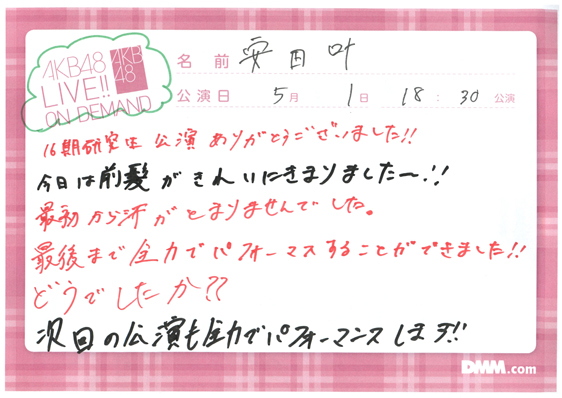 AKB48
LIVE!!
ON DEMAND
AKB
48
名前 安田叶
公演日 5月 1日 18:30 公演
16期研究生 公演 ありがとうございました!!
今日は前髪がきれいにきまりましたー!!
最初から汗がとまりませんでした。
最後まで全力でパフォーマスすることができました!!
どうでしたか??
次回の公演も全力でパフォーマンスします!!
DMM.com